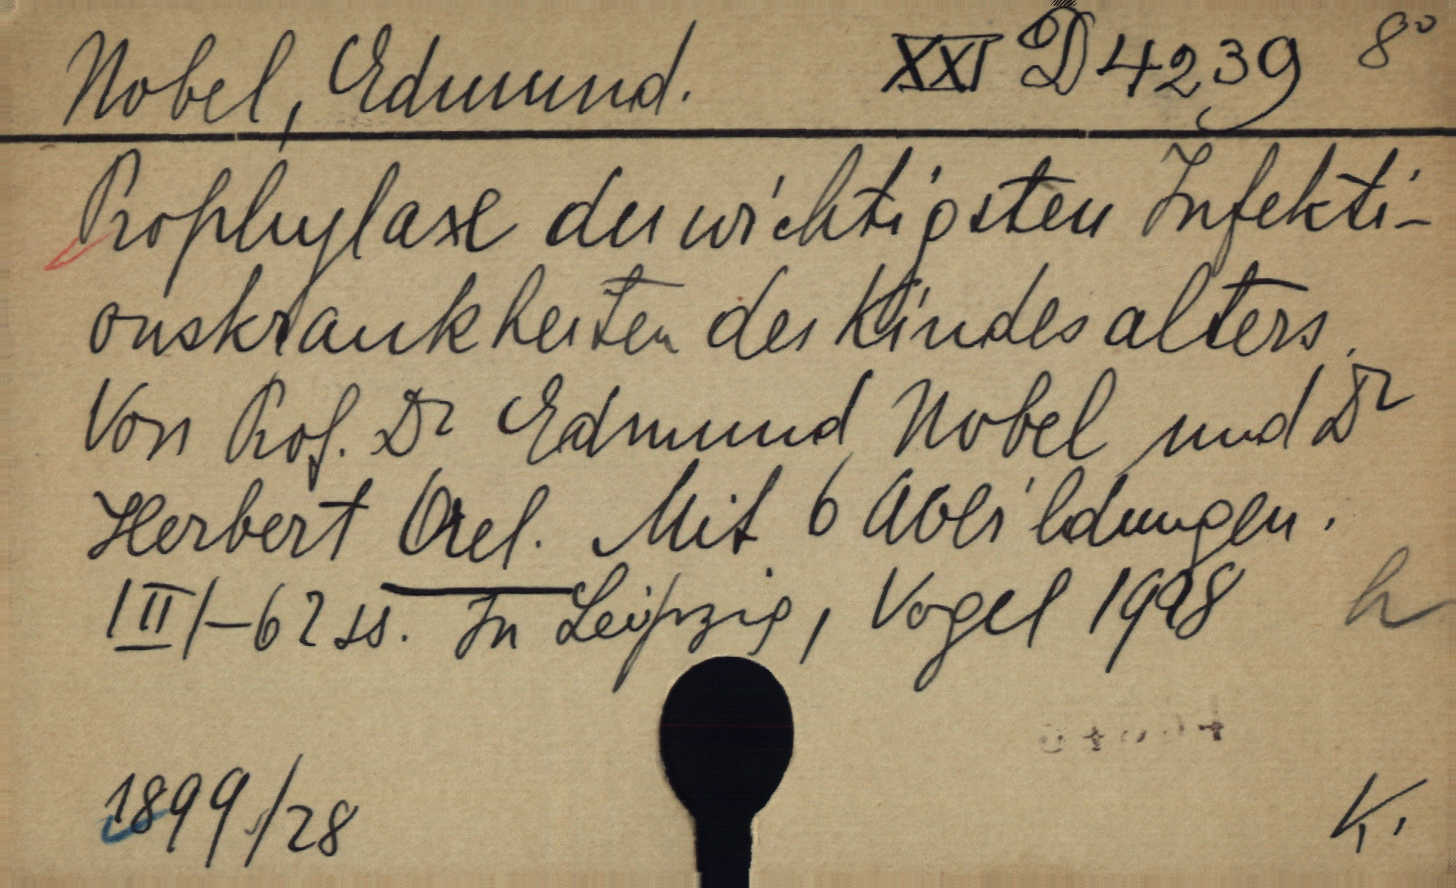 Nobel, Edmund. XXI D 4239 8°
Prophylaxe der wichtigsten Infekti-
onskrankheiten des Kindesalters.
Von Prof. Dr Edmund Nobel und Dr
Herbert Orel. Mit 6 Abbildungen.
|III|-62 ss. In Leipzig, Vogel 1928 h
1899/28 K.